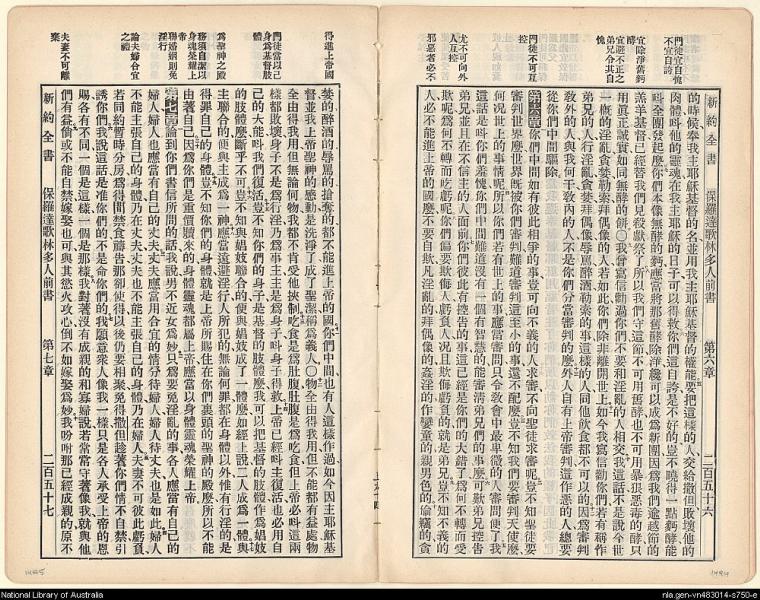 新約全書　保羅達歌林多人前書　第六章　二百五十六
門徒宜自愧
不宜自誇
宜除淨舊麪
酵
宜避不正之
弟兄令其自
愧
門徒不可互
控
尤不可向外
人互控
邪惡者必不
的時候奉我主耶穌基督的名並用我主耶穌基督的權能要把這樣的人交給撒但敗壞他的
肉體呌他的靈魂在我主耶穌的日子可以得救你們這自誇是不好的豈不曉得一點麪酵能
呌全團發起麼你們本像無酵的麪應當將那舊酵除淨纔可以成爲新團因爲我們逾越節的
羔羊基督已經替我們見殺獻祭了所以我們守這節不可用舊酵也不可用暴狠惡毒的酵只
用眞正誠實如同無酵的餅〇我曾寫信勸過你們不要和淫亂的人相交我這話不是說今世
一概的淫亂貪婪勒索拜偶像的人若如此你們除非離開世上如今我寫信勸你們若有稱作
弟兄的人行淫亂貪婪拜偶像辱罵醉酒勒索的事這樣的人同他飲食都不可以的因爲審判
敎外的人與我何干敎內的人不是你們分當審判的麼外人自有上帝審判這作惡的人總要
從你們中間驅除
第六章你們中間如有彼此相爭的事豈可向不義的人求審不向聖徒求審呢豈不知聖徒要
審判世界麼世界旣被你們審判難道審判這至小的事還不配麼豈不知我們要審判天使麼
何况世上的事情呢所以你們若有世上的事應當審問只令敎會中最卑微的人審問便了我
這話是呌你們羞愧你們中間難道沒有一個有智慧的能審淸弟兄們的事麼可歎弟兄控告
弟兄並且在不信主的人面前你們彼此有控告的事這已經是你們的大錯了爲何不轉而受
欺呢爲何不轉而吃虧呢你們偏要欺侮人虧負人况且欺侮虧負的就是弟兄豈不知不義的
人必不能進上帝的國麼不要自欺凡淫亂的拜偶像的姦淫的作孌童的親男色的偷竊的貪
得進上帝國
門徒當以己
身爲基督肢
體
爲聖神之殿
務須自潔以
身魂榮耀上
帝
聯婚姻則免
淫行
論夫婦合宜
之禮
夫妻不可離
棄
婪的醉酒的辱罵的搶奪的都不能進上帝的國你們中間也有人這樣作過如今因主耶穌基
督並我上帝聖神的感動是洗淨了成了聖潔稱爲義人〇物全由得我用但不能都有益處物
全由得我用但無論何物我都不肯受他挾制吃食是爲肚腹肚腹是爲吃食但上帝必呌這兩
樣都敗壞身子不是爲行淫乃爲事主主是爲身子呌身子得救上帝已經呌主復活也必用自
己的大能呌我們復活豈不知你們的身子是基督的肢體麼我可以把基督的肢體作爲娼妓
的肢體麼斷乎不可豈不知與娼妓聯合的便與娼妓成了一體麼如經上說二人成爲一體與
主聯合的便與主成爲一神應當遠避淫行人所犯的無論何罪都在身體以外惟有行淫的是
得罪自己的身體豈不知你們的身體就是上帝所賜住在你們裏頭的聖神的殿麼所以不能
由著自己因爲你們是重價贖來的身體靈魂都屬上帝應當以身體靈魂榮耀上帝
第七章論到你們書信所問的話我說男不近女爲妙只爲要免淫亂的事各人應當有自己的
婦人婦人也應當有自己的丈夫丈夫應當用合宜的情分待婦人婦人待丈夫也是如此婦人
不能主張自己的身體乃在丈夫丈夫也不能主張自己的身體乃在婦人夫妻不可彼此虧負
若同約暫時分房爲得閒禁食禱吿那卻使得以後仍要相聚免得撒但趁著你們情不自禁引
誘你們我說這話是准你們的不是命你們的我願意衆人像我一樣只是各人承受上帝的恩
賜各有不同一個是這樣一個是那樣我對著沒有成親的和寡婦說若常常守著像我就與他
們有益倘或不能自禁嫁娶也可與其慾火攻心倒不如嫁娶爲妙我吩咐那已經成親的原不
新約全書　保羅達歌林多人前書　第七章　二百五十七
National Library of Australia
nla.gen-vn483014-s750-e